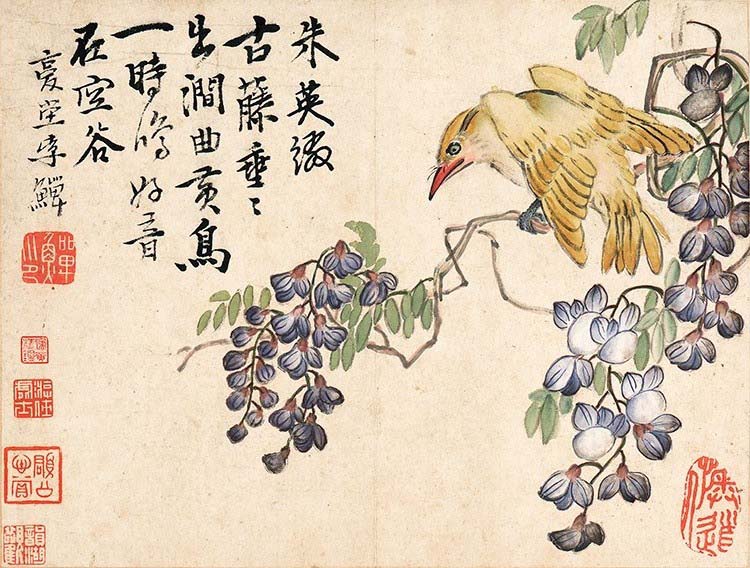 朱英綴
古藤垂〻
出澗曲黃鳥
一時鳴好音
在空谷
复堂李鱓